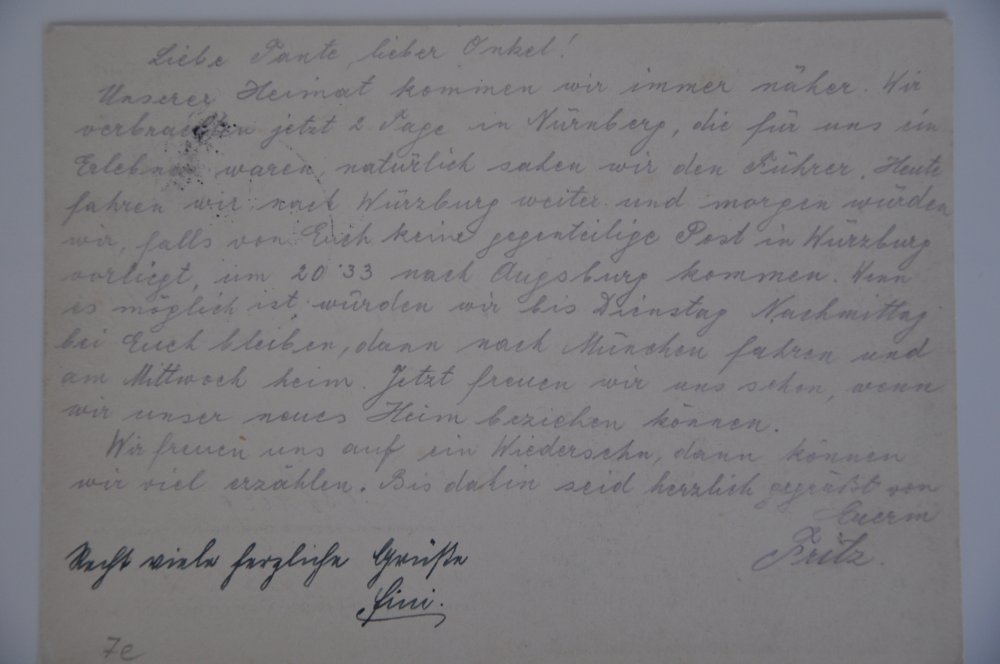 Liebe Tante, lieber Onkel!
Unserer Heimat kommen wir immer näher. Wir
verbrachten jetzt 2 Tage in Nürnberg, die für uns ein
Erlebnis waren, natürlich sahen wir den Führer. Heute
fahren wir nach Würzburg weiter und morgen würden
wir, falls von Euch keine gegenteilige Post in Würzburg
vorliegt, um 20 33 nach Augsburg kommen. Wenn
es möglich ist, würden wir bis Dienstag Nachmittag
bei Euch bleiben, dann nach München fahren und
am Mittwoch heim. Jetzt freuen wir uns schon, wenn
wir unser neues Heim beziehen können.
Wir freuen uns auf ein Wiedersehn, dann können
wir viel erzählen. Bis dahin seid herzlich gegrüßt von
Euerm
Fritz.
Recht viele herzliche Grüße
Fini.
7e